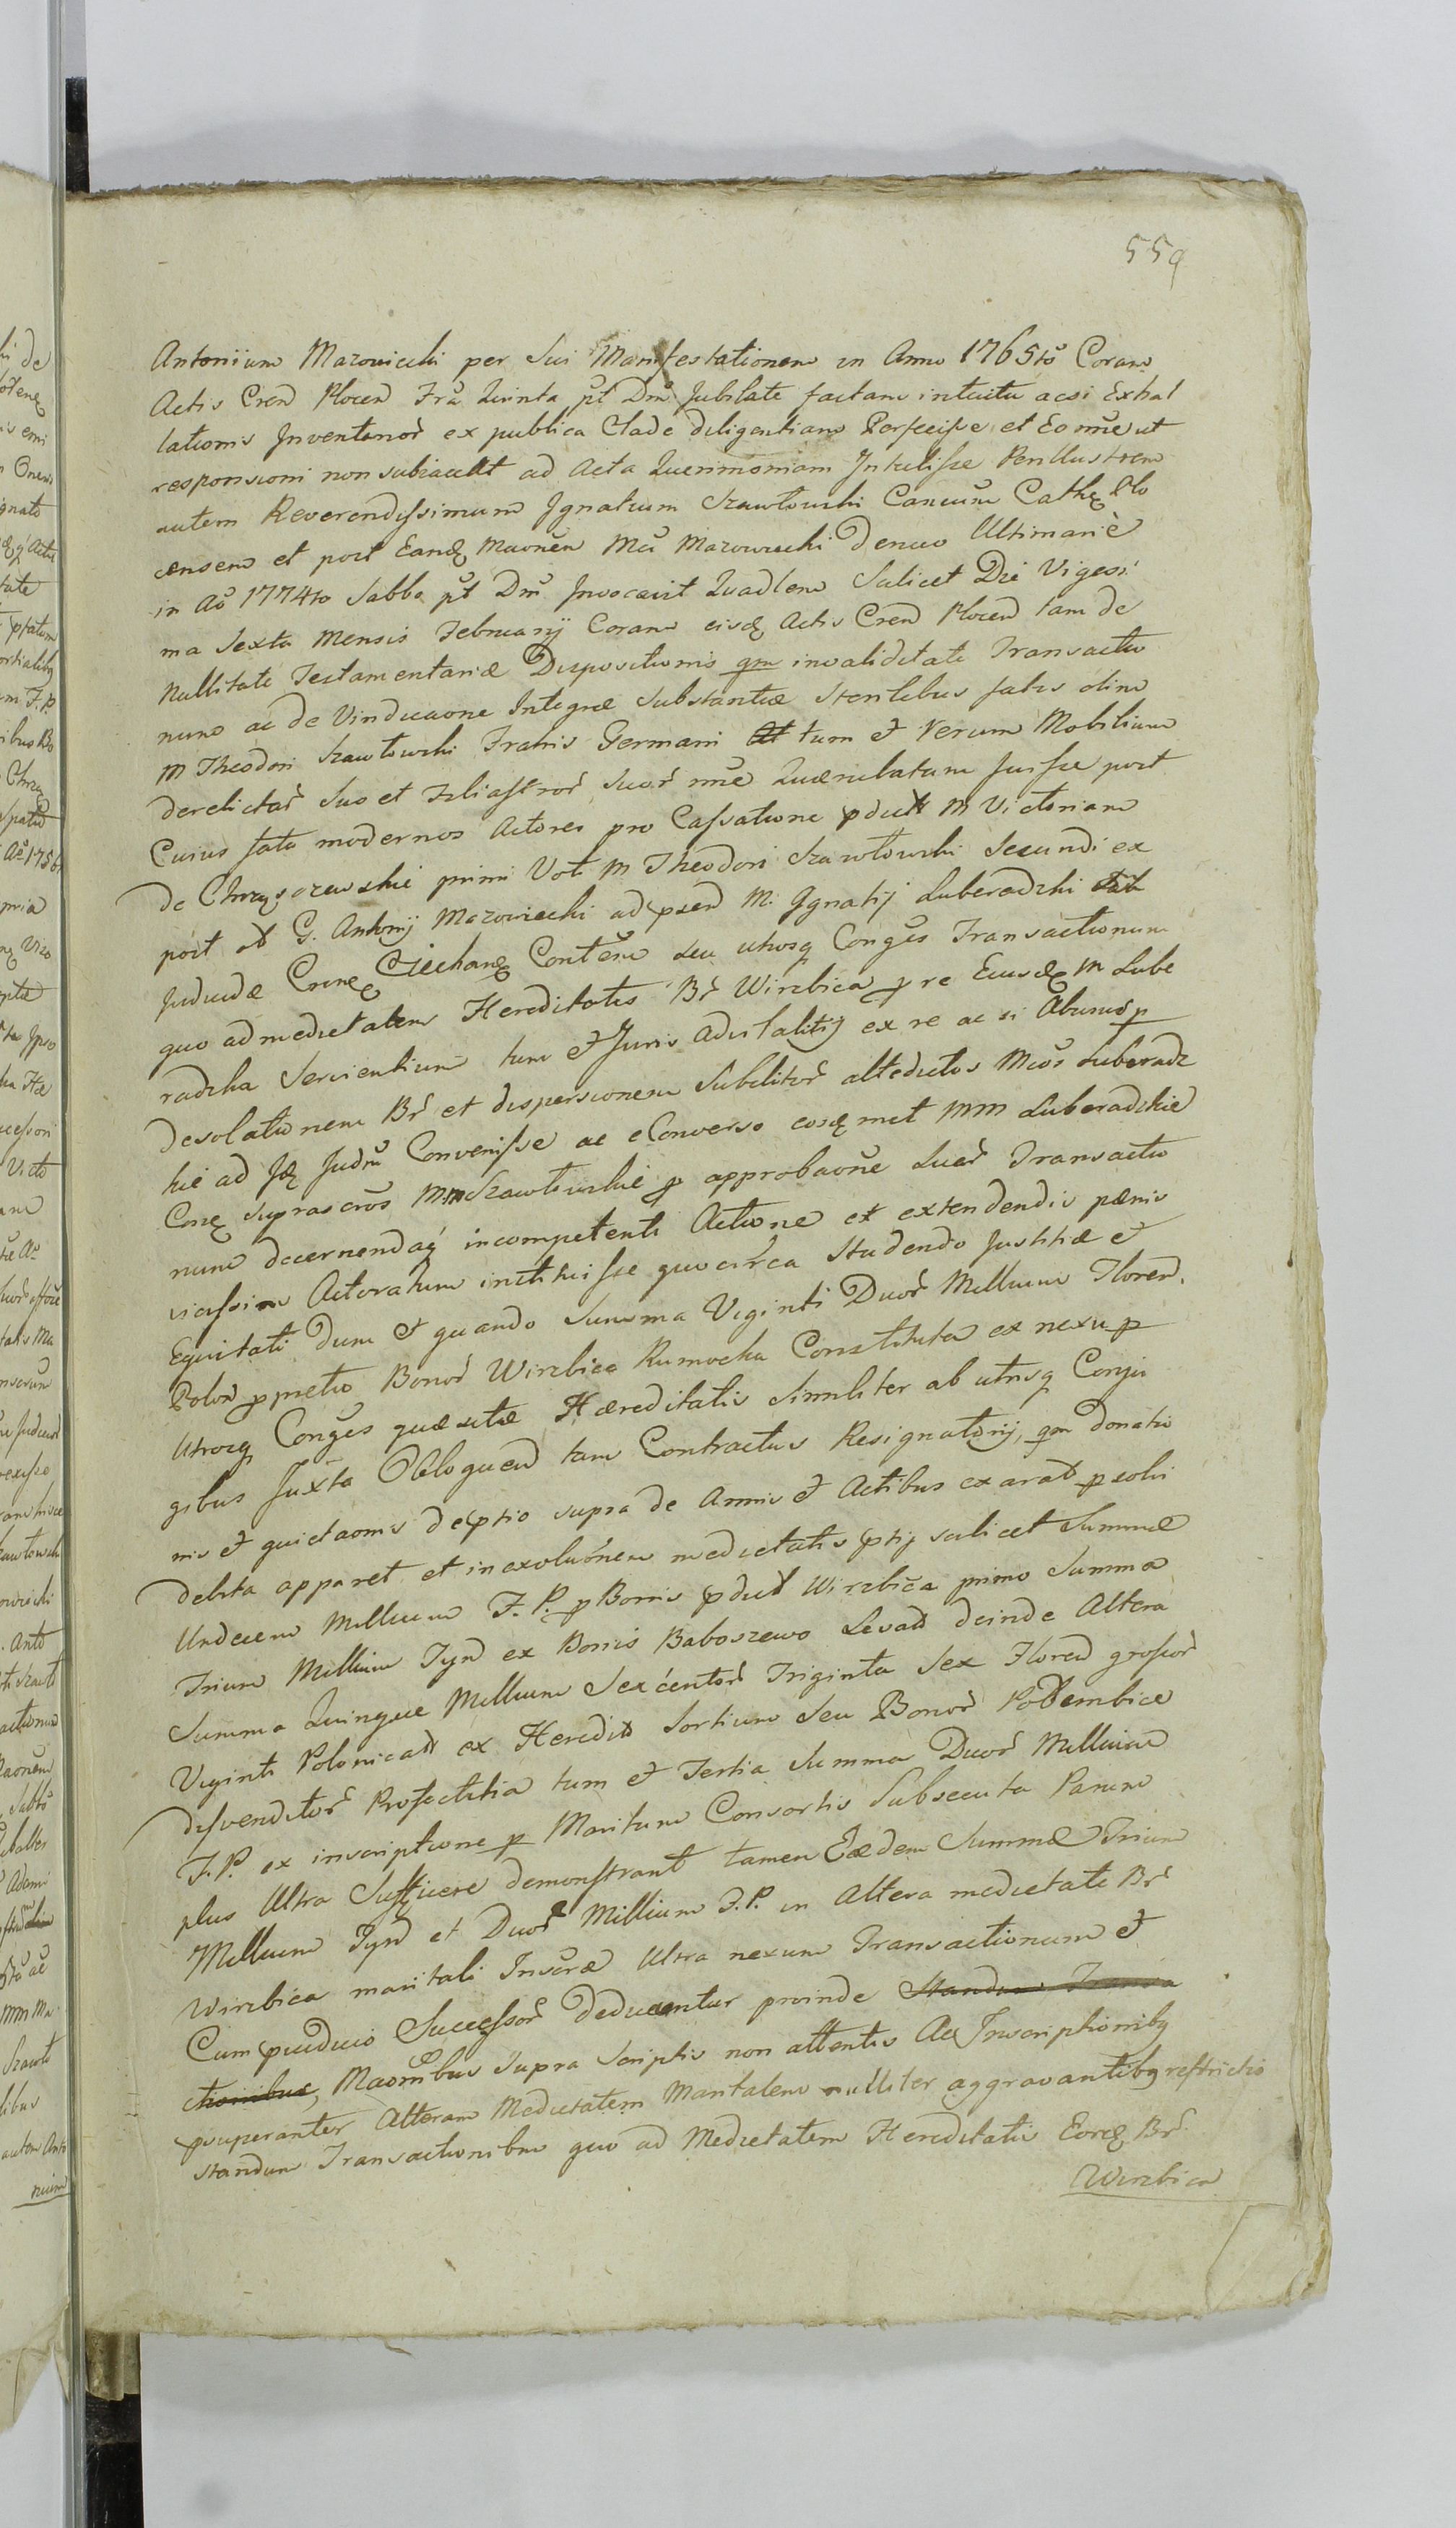 559
Antoniium Mazowiecki per Sui Manifestationem in Anno 1765tö Coram
Actis Cren Plocen Fra Quinta pt Dm Jubilate factam intuitu acsi Extra
lationis Inventarior ex publica Clade diligentiam Perfecisse et Eo mne ut
responsioni non subiaceat ad Acta Querimoniam Intulisse Perillustrem
autem Reverendissimum Ignatium Szawłowski Cancum Cathe Plo
censem et post Eande Maonem Mci Mazowiecki denuo Ultimarie
in Ao 1774to Sabbo pt Dm Invocavit Quadlem Scilicet Die Vigesi
ma Sexta Mensis Februarij Coram eisde Actis Cren Plocen tam de
Nullitate Testamentariæ Dispositionis qm invaliditate Transactio
num ac de Vindicaone Integræ Substantiæ Sterilibus fatis olim
M Theodori Szawłowski Fratris Germani tum et Rerum Mobilium
derelictar Suo et Filiastror Suor nne Quærulatum fuisse post
Cuius fata modernos Actores pro Cassatione M Victoriam
de Chrzęszczewskie primi Voti M Theodori Szawłowski Secundi ex
post ot G. Antonij Mazowiecki ad M. Ignatij Luberadzki
Judicidæ Crene Ciechane Conten seu utrosq Conges Transactionum
quo ad medietatem Hereditatis Br Wirzbica p re Eiusde M Lube
radzka Servientium tum et Juris advitalitij ex re ac si Abusus p
desolationem Br et dispersionem Subditor altedictos Mcos Luberadz
kie ad Jde Judm Convenisse ac e Converso eosde met MM Luberadzkie
Cone suprascros MM Szawłowskie p approbaone Suar Transactio
num decernendaq incompetenti Actione et extendendis pænis
vicissim Actoratum instituisse quo circa Studendo Justitiæ et
Equitati dum et quando Summa Viginti Duor Millium Floren.
Polon p pretio Bonor Wirzbica Rumocka Constituta ex nexu p
Utrosq Conges quæsitæ Hæreditatis Similiter ab utrisq Conju
gibus Juxta Obloquen tam Contractus Resignatorij, qm donatio
nis et quietaonis supra de Annis et Actibus exarat p solvi
debita apparet et in exoluonem medietatis scilicet Summæ
Undecem Millium F. P. p Bonis Wirzbica primo Summa
Trium Millium Tyn ex Bonis Baboszewo Levat deinde Altera
Summa Quinque Millium Sexcentor Triginta Sex Floren grossor
Viginti Polonicat ex Heredit Sortium Seu Bonor Podembice
disvenditor Profectitia tum et Tertia Summa Duor Millium
F. P. ex inscriptione p Maritum Consortis Subsecuta Parum
plus Ultra Sufficere demonstrant tamen Eædem Summæ Trium
Millium Tyn et Duor Millium F. P. in Altera medietate Br
Wirzbica maritali Inscræ Ultra nexum Transactionum et
Cum Successor deducantur proinde Standum Transa
ctionibus, Maonibus supra scriptis non attentis Ac Inscriptionibq
Alteram Medietatem Maritalem nulliter aggravantibq restrictio
standum Transactionibus quo ad Medietatem Hereditatis Eorde Br
Wirzbica